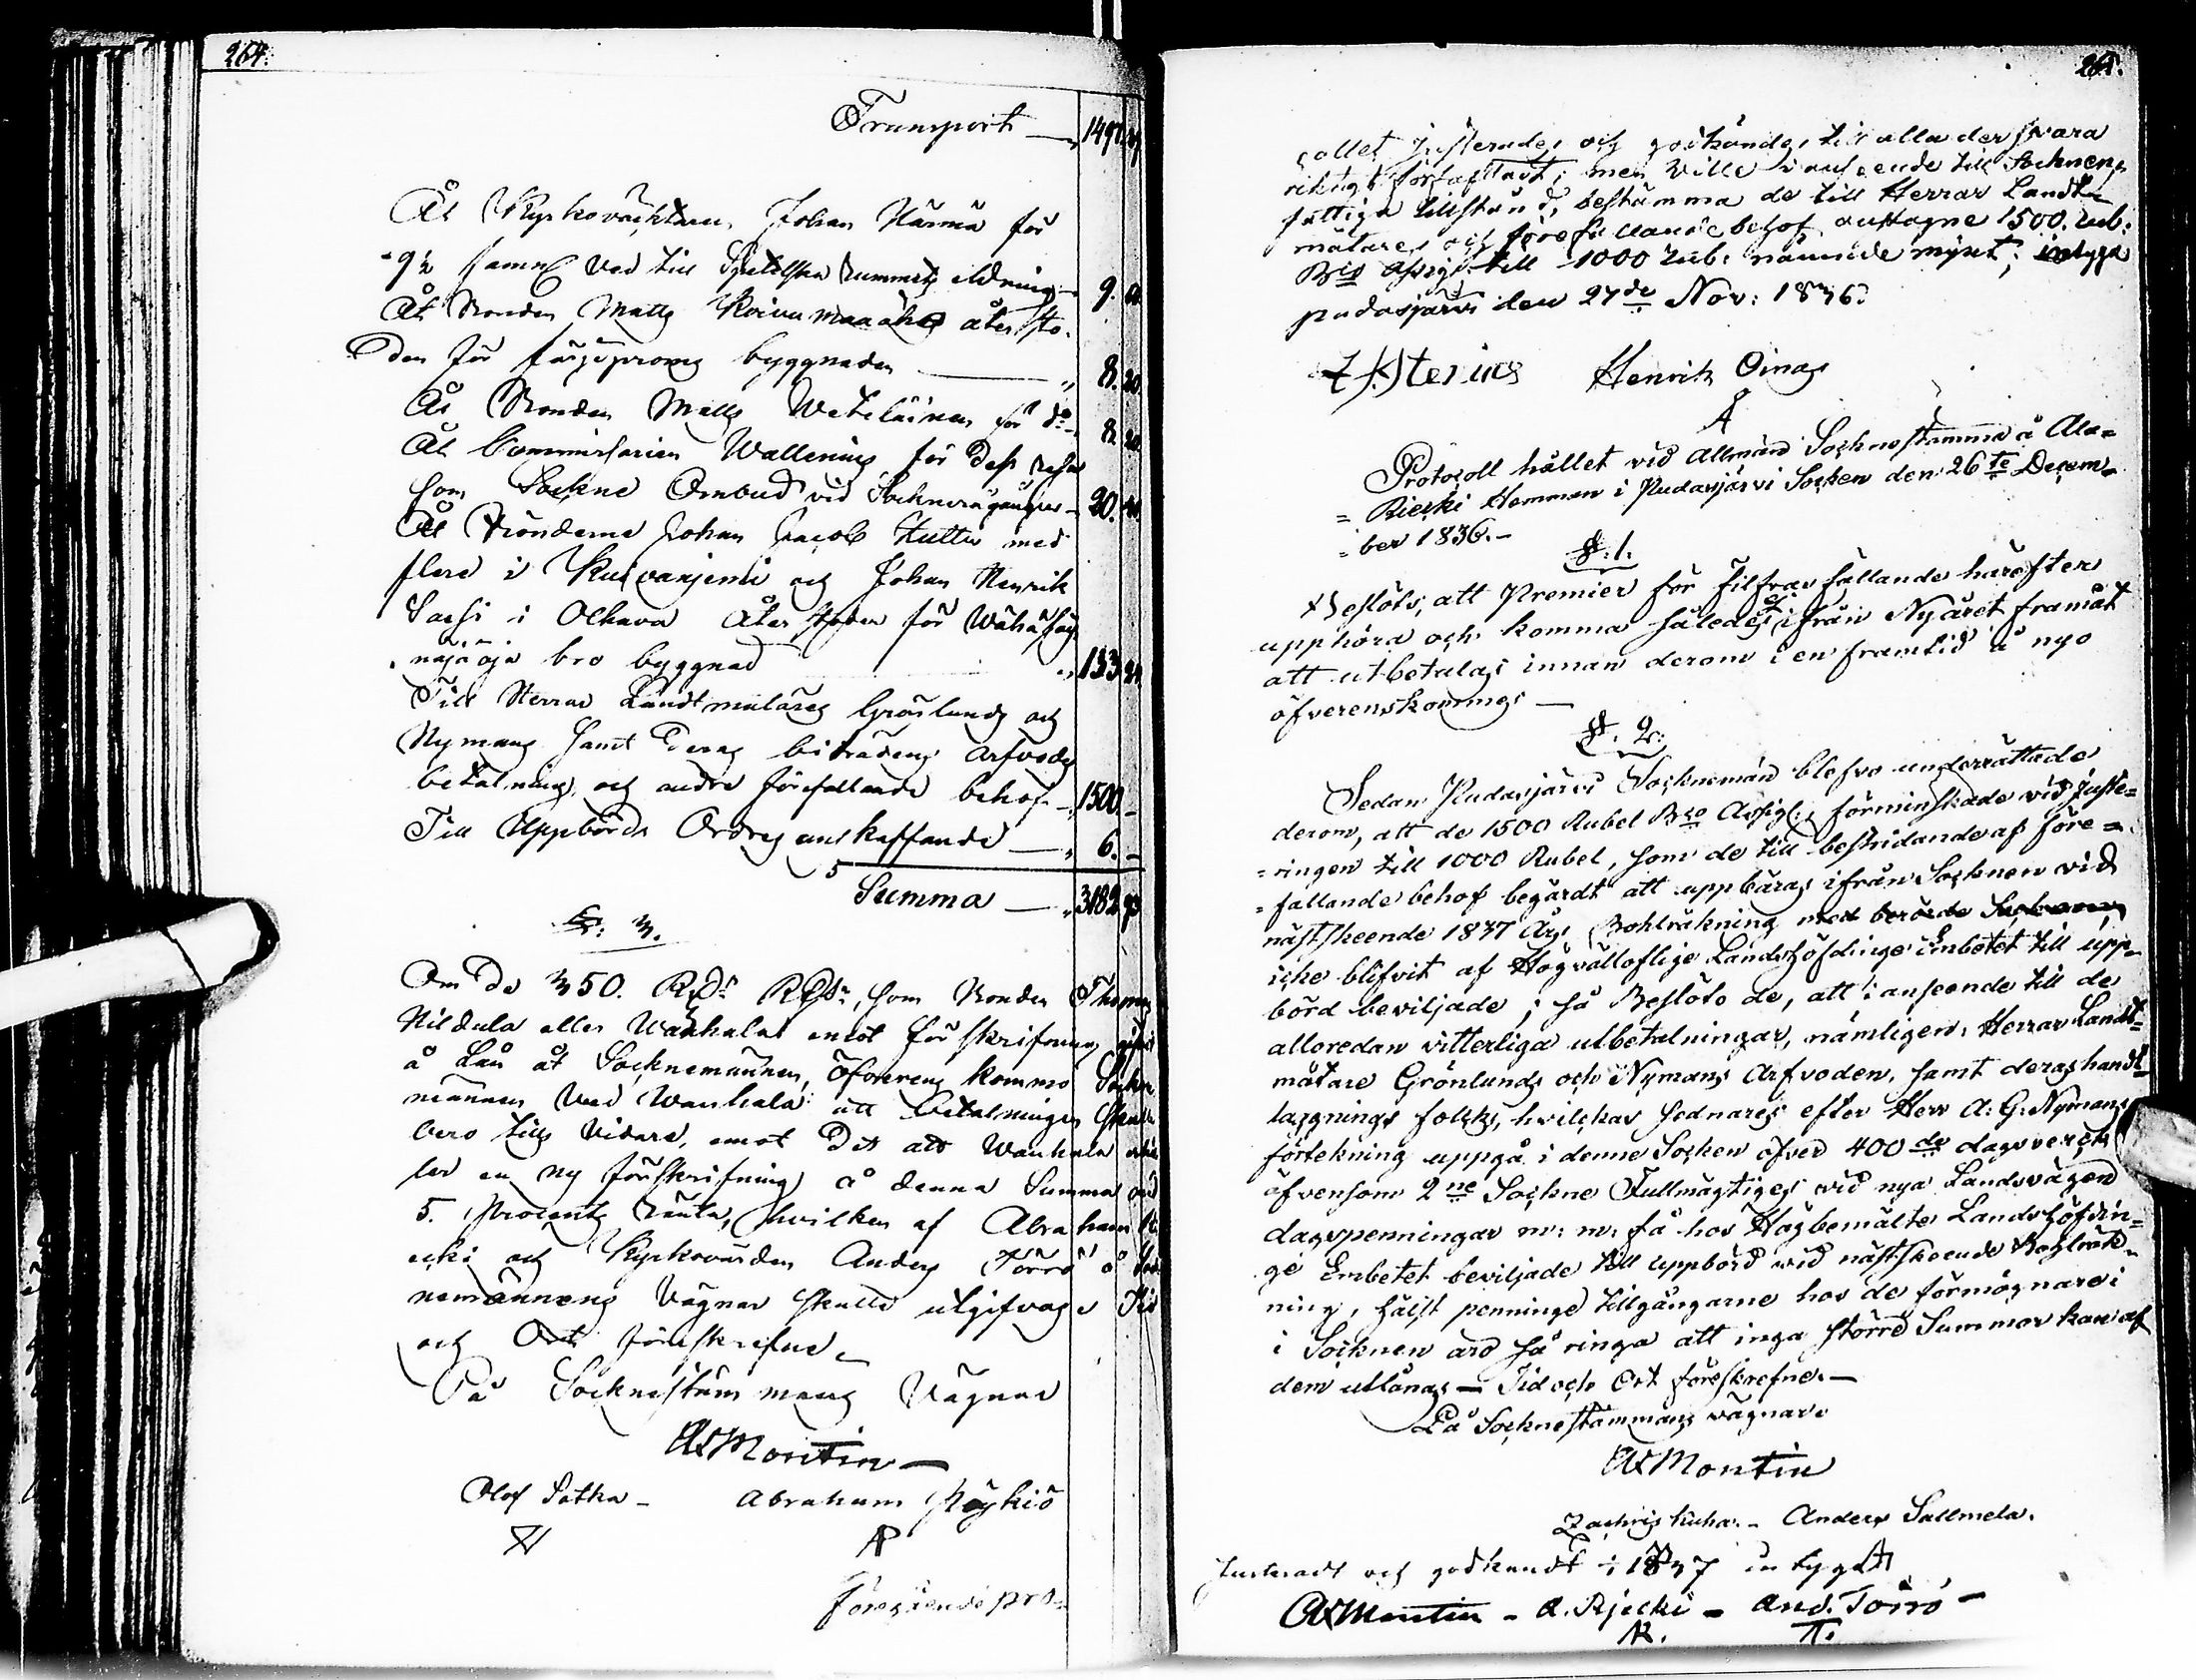 264.
Transport — „ 1497.
Åt Kyrkoväcktaren Johan Härmä för
9½ famn Ved till Spetelska rummets eldning — 9.
Åt Bonden Matts Koivumaa åhes återsto-
den för färjeproms byggnaden — „ 8. 20.
Åt Bonden Matts Weteläinen för do — 8. 20.
Åt Commissarien Wallenius för dess resor
som Sockne Ombud vid Socknerågången — 20.
Åt Bönderne Johan Jacob Huttu med
flere i Kuivaniemi och Johan Henrik
Sassi i Olhava återstoden för Wähä
najä oja bro byggnad — „ 133
Till Herrar Landtmätares Grönlunds och
Nymans samt deras biträdens arfvodes
betalning, och andre förefallande behof — „ 1500. —
Till Uppbörds Ordres anskaffande — „ 6. —
Summa — „ 3182.
§: 3.
Om de 350. Rdr Rgs, som Bonden Thomas
Hildula eller Wanhala emot förskrifning gifvit
å Lån åt Socknemännen, öfverens kommo Sockne
männen med Wanhala att betalningen skulle
bero tills vidare, emot det att Wanhala
ler en ny förskrifning å denna Summa med
5. procents ränta, hvilken af Abraham
och Kyrkovärden Anders Törrö å Sock
nemännens Vägnar skulle utgifvas. Tid
och Ort föreskrefne.
På Sockneståmmans Vägnar
AMontin —
Olof Satka — Abraham Pöykiö
AP
Föregående pro-
265.
collet justerades och godkändes till alla der svara
riktigt författadt; men ville i anseende till Socknens
fattiga tillstånd, bestämma de till Herrar Landt-
mätares och förefallande behof antagne 1500. rub:
Bco Assign: till 1000 rub: nämnde mynt; intyga
pudasjärvi den 27de Nov: 1836.
Henrik Oinas
Protocoll hållet vid allmän Socknestämma å Ala=
= Riecki Hemman i Pudasjärvi Socken den 26te Decem=
= ber 1836. —
§. 1.
Beslöts, att Premier för filfras fällande härefter
upphöra och komma således ej ifrån Nyåret framåt
att utbetalas innan derom i en framtid å nyo
öfverenskommes —
§. 2.
Sedan Pudasjärvi Socknemän blefvo underrättade
derom, att de 1500 Rubel Bco Assign:, förminskade vid juste=
= ringen till 1000 Rubel, som de till bestridande af före=
= fallande behof begärdt att uppbäras ifrån Socknen vid
nästskeende 1837 Års Bohlräkning med berörde
icke blifvit af Högvälloflige Landshöfdinge Embetet till upp=
börd beviljade; så Beslöto de, att i anseende till de
alloredan vitterliga utbetalningar, nämligen: Herrar Landt=
mätare Grönlunds och Nymans Arfvoden, samt deras handt=
lagnings folcks, hvilckas sednares efter Herr A: G: Nymans
förtekning uppgå i denne Socken öfver 400de dagsverck
äfvensom 2ne Sockne Fullmägtiges vid nya Landsvägen
dagspenningar m: m: få hos Högbemälte Landshöfdin=
ge Embetet beviljade till uppbörd vid nästskeende Bohlräk=
ning, hälst penninge tillgångarne hos de förmögnare i
i Socknen äro så ringa att inga större Summor kan af
dem utlånas — Tid och Ort föreskrefne. —
På Socknestämmans vägnar
AMontin
Zachris Kuha. — Anders Sallmela.
Justeradt och godkändt 1/1 1837 intygar
AMontin — A. Riecki — And. Törrö —
AR. T.